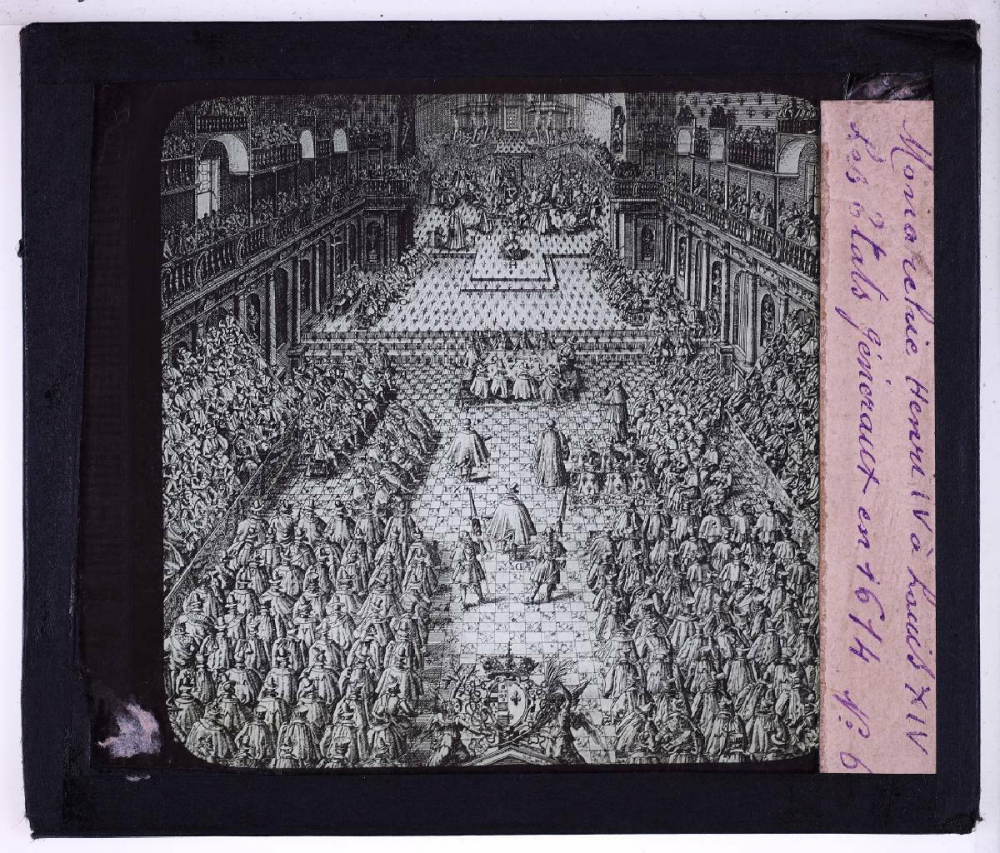 Monarchie Henri IV à Louis XIV
Les Etats Généraux en 1614 N° 6